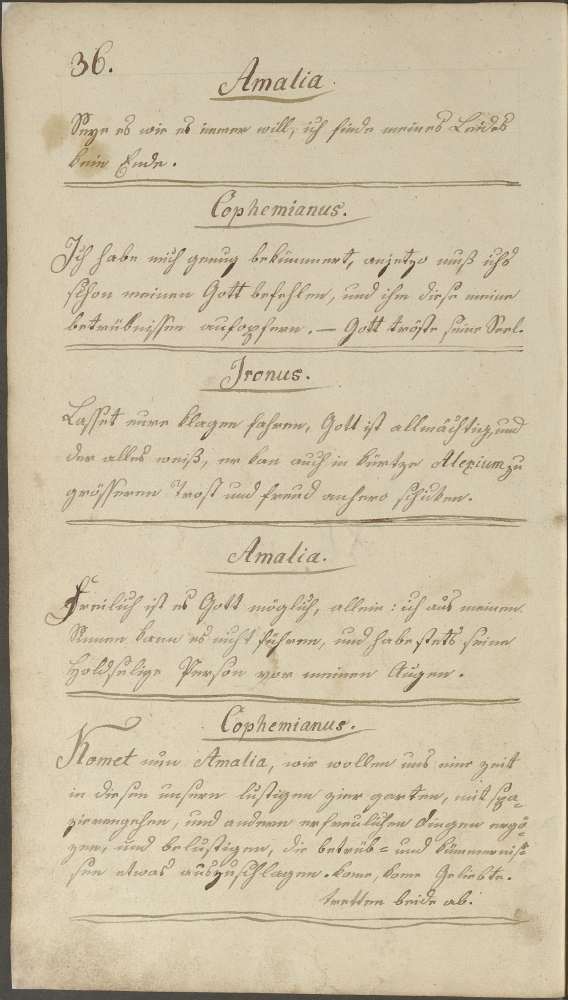 36.
Amalia.
Seye es wie es immer will, ich finde meines Leides
kein Ende.
Cophemianus.
Ich habe mich genug bekümmert, anjetzo muß ichs
schon meinen Gott befehlen, und ihm diese meine
betrübnissen aufopfern. — Gott tröste seine Seel.
Ironus.
Lasset eure klagen fahren, Gott ist allmächtig, und
der alles weiß, er kan auch in kürtze Alexium zu
grösseren Trost und freud anhero schicken.
Amalia.
Freilich ist es Gott möglich, allein: ich aus meinen
Sinnen kann es nicht führen, und habe stets seine
Holdselige Person vor meinen Augen.
Cophemianus.
Komet nun Amalia, wir wollen uns eine zeit
in diesen unsern lustigen zier garten, mit spa-
zierengehen, und andern erfreulichen dingen ergö-
zen, und belustigen, die betrüb= und kümmernis-
sen etwas auszuschlagen. kome, kome Geliebte.
tretten beide ab.